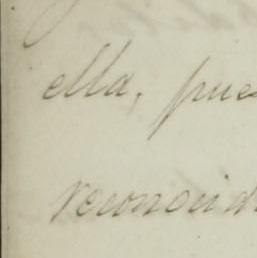 ella, pues
reconocid